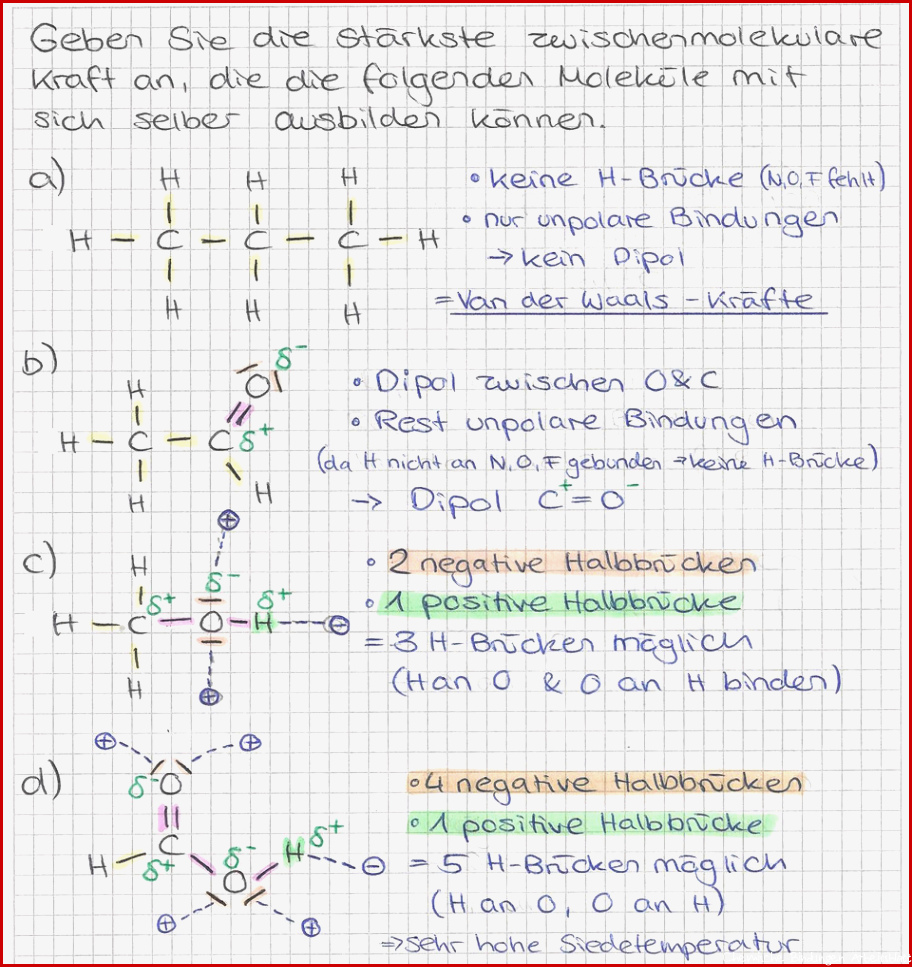 Geben Sie die stärkste zwischenmolekulare
Kraft an, die die folgenden Moleküle mit
sich selber ausbilden können.
a)
H H H
H – C – C – C – H
H H H
• keine H-Brücke (N,O,F fehlt)
• nur unpolare Bindungen
→ kein Dipol
= Van der Waals - Kräfte
b)
δ-
H O
H – C – C δ+
H H
• Dipol zwischen O & C
• Rest unpolare Bindungen
(da H nicht an N,O,F gebunden → keine H-Brücke)
→ Dipol C+ = O-
c)
⊕
H δ- δ+
δ+
H – C – O – H ---- ⊖
H ⊕
• 2 negative Halbbrücken
• 1 positive Halbbrücke
= 3 H-Brücken möglich
(H an O & O an H binden)
d)
⊕ ⊕
δ- O
C
H δ+ δ- H δ+
O ⊖
⊕ ⊕
• 4 negative Halbbrücken
• 1 positive Halbbrücke
= 5 H-Brücken möglich
(H an O, O an H)
⇒ sehr hohe Siedetemperatur